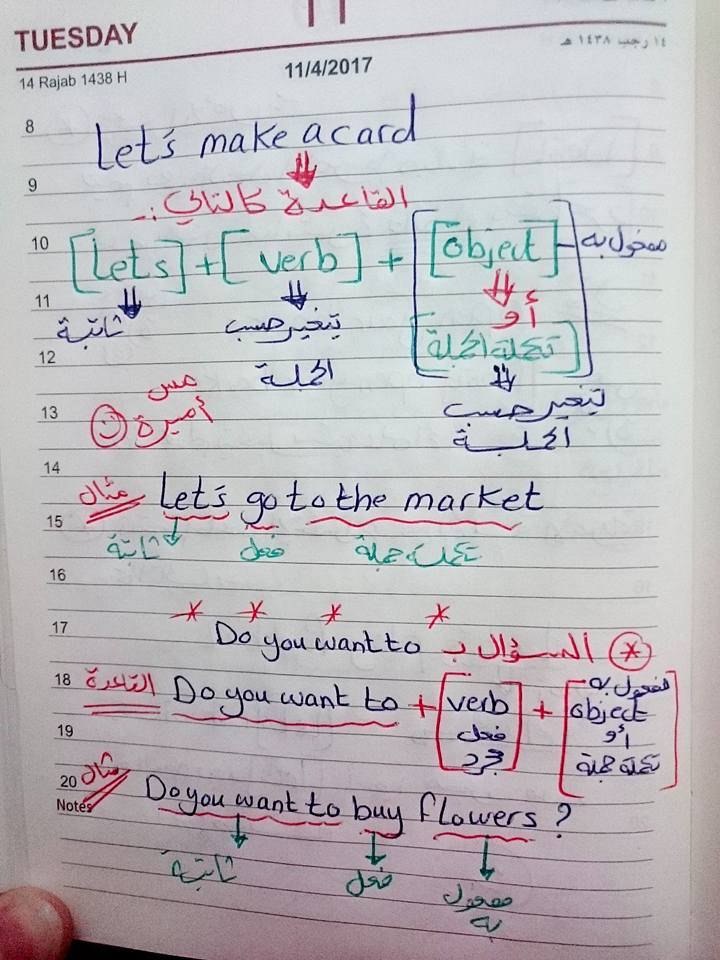 11
TUESDAY
١٤ رجب ١٤٣٨ هـ
14 Rajab 1438 H
11/4/2017
8
Let's make a card
9
القاعدة كالتالي :-
10
[Let's] + [verb] + [object] مفعول به
11
أو
ثابتة
يتغير حسب
[تكملة الجملة]
12
الجملة
مس
يتغير حسب
13
أميرة
الجملة
14
مثال Let's go to the market
15
ثابتة فعل تكملة جملة
16
17
* السؤال ب Do you want to
18
القاعدة Do you want to + [verb] + [object]
مفعول به
فعل
أو
19
مجرد
تكملة جملة
20
مثال Do you want to buy flowers ?
Notes
ثابتة
فعل
مفعول
به